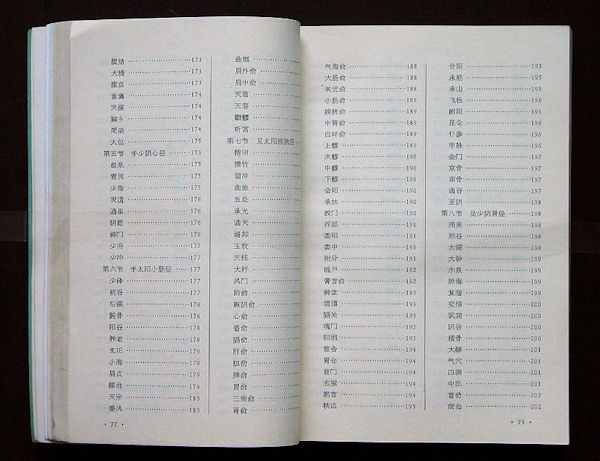 腹结 173
大横 173
腹哀 173
食窦 174
天溪 174
胸乡 174
周荣 175
大包 175
第五节 手少阴心经 175
极泉 175
青灵 175
少海 175
灵道 176
通里 176
阴郄 176
神门 176
少府 177
少冲 177
第六节 手太阳小肠经 177
少泽 177
前谷 177
后溪 178
腕骨 178
阳谷 178
养老 178
支正 179
小海 179
肩贞 179
臑俞 179
天宗 180
秉风 180
· 72 ·
曲垣
肩外俞
肩中俞
天窗
天容
颧髎
听宫
第七节 足太阳膀胱经
睛明
攒竹
眉冲
曲差
五处
承光
通天
络却
玉枕
天柱
大杼
风门
肺俞
厥阴俞
心俞
督俞
膈俞
肝俞
胆俞
脾俞
胃俞
三焦俞
肾俞
气海俞 188
大肠俞 188
关元俞 188
小肠俞 189
膀胱俞 189
中膂俞 189
白环俞 189
上髎 189
次髎 190
中髎 190
下髎 190
会阳 190
承扶 190
殷门 190
浮郄 191
委阳 191
委中 191
附分 191
魄户 191
膏肓俞 192
神堂 192
譩譆 192
膈关 192
魂门 193
阳纲 193
意舍 193
胃仓 193
肓门 194
志室 194
胞肓 194
秩边 195
合阳 195
承筋 195
承山 195
飞扬 195
跗阳 196
昆仑 196
仆参 196
申脉 196
金门 197
京骨 197
束骨 197
通谷 197
至阴 197
第八节 足少阴肾经 198
涌泉 198
然谷 198
太溪 198
大钟 199
水泉 199
照海 199
复溜 199
交信 200
筑宾 200
阴谷 200
横骨 200
大赫 201
气穴 201
四满 201
中注 201
肓俞 202
商曲 202
· 73 ·